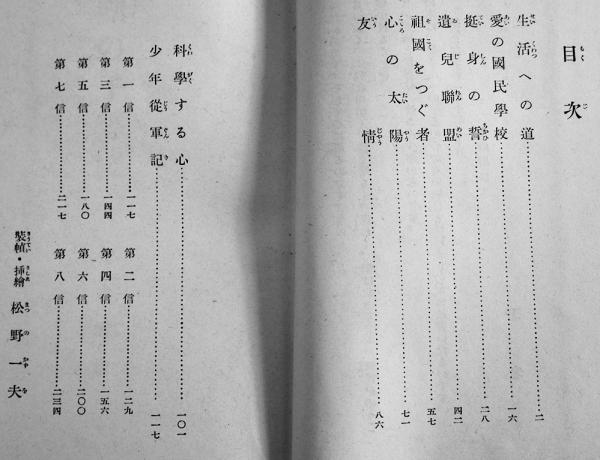 目次
生活への道……二
愛の國民學校……一六
挺身の誓……二八
遺兒聯盟……四二
祖國をつぐ者……五七
心の太陽……七一
友情……八六
科學する心……一〇一
少年從軍記……一一七
第一信……一一七
第二信……一二九
第三信……一四四
第四信……一五六
第五信……一八〇
第六信……二〇〇
第七信……二一七
第八信……二三四
裝幀・挿繪 松野一夫